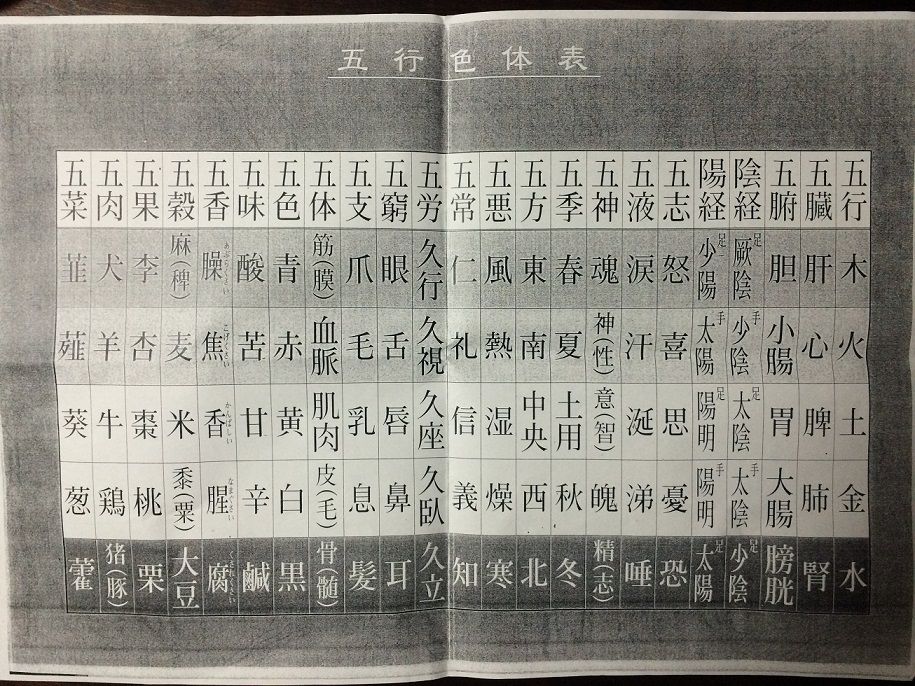 五行色体表
五行 木 火 土 金 水
五臓 肝 心 脾 肺 腎
五腑 胆 小腸 胃 大腸 膀胱
陰経 足厥陰 手少陰 足太陰 手太陰 足少陰
陽経 足少陽 手太陽 足陽明 手陽明 足太陽
五志 怒 喜 思 憂 恐
五液 涙 汗 涎 涕 唾
五神 魂 神(性) 意(智) 魄 精(志)
五季 春 夏 土用 秋 冬
五方 東 南 中央 西 北
五悪 風 熱 湿 燥 寒
五常 仁 礼 信 義 知
五労 久行 久視 久座 久臥 久立
五窮 眼 舌 唇 鼻 耳
五支 爪 毛 乳 息 髪
五体 筋(膜) 血脈 肌肉 皮(毛) 骨(髄)
五色 青 赤 黄 白 黒
五味 酸 苦 甘 辛 鹹
五香 臊 焦 こげくさい 香 かんばしい 腥 なまぐさい 腐
五穀 麻(稗) 麦 米 黍(粟) 大豆
五果 李 杏 棗 桃 栗
五肉 犬 羊 牛 鶏 猪(豚)
五菜 韮 薤 葵 葱 藿